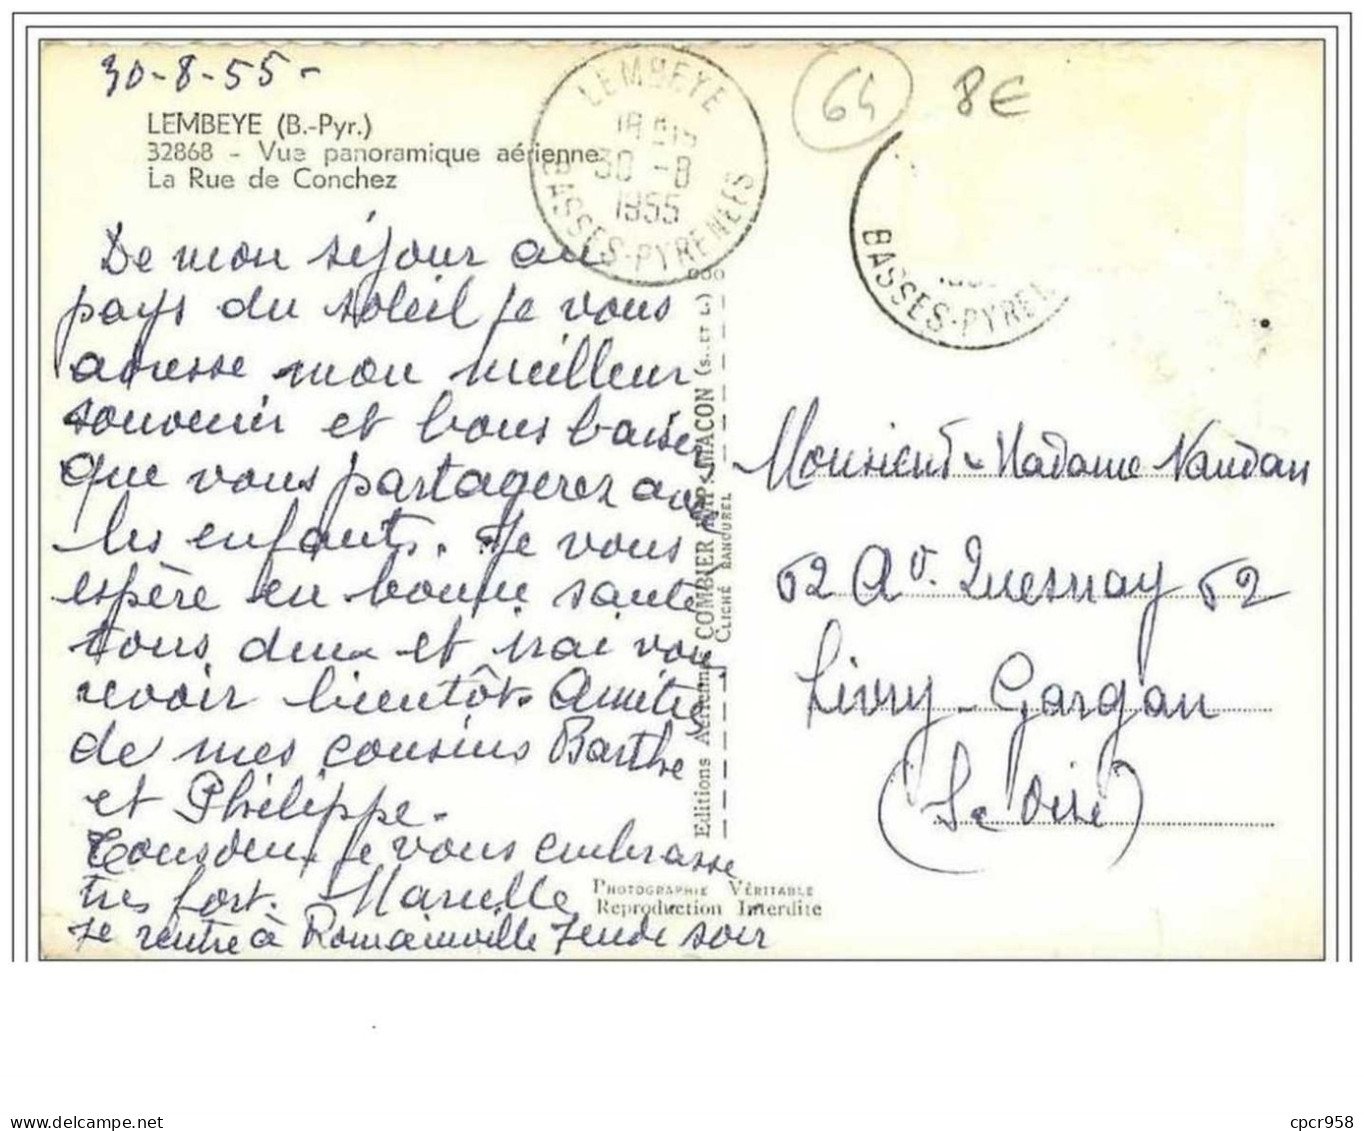 30-8-55-
LEMBEYE (B.-Pyr.)
32868 - Vue panoramique aérienne
La Rue de Conchez
LEMBEYE
30 -8
1955
BASSES-PYRENEES
64
8€
BASSES-PYREN
De mon séjour au
pays du soleil je vous
adresse mon meilleur
souvenir et bons baisers
que vous partagerez avec
les enfants. Je vous
espère en bonne santé
tous deux et irai vous
revoir bientôt. Amitiés
de mes cousins Barthe
et Philippe.
Tous deux je vous embrasse
très fort. Marcelle
Je rentre à Romainville Jeudi soir
Editions Aériennes COMBIER IMP. MACON (S.-ET L.)
CLICHÉ RANCUREL
PHOTOGRAPHIE VÉRITABLE
Reproduction Interdite
Monsieur-Madame Naudan
62 Av. Quesnay 62
Livry-Gargan
(Se Oise)
cpcr958